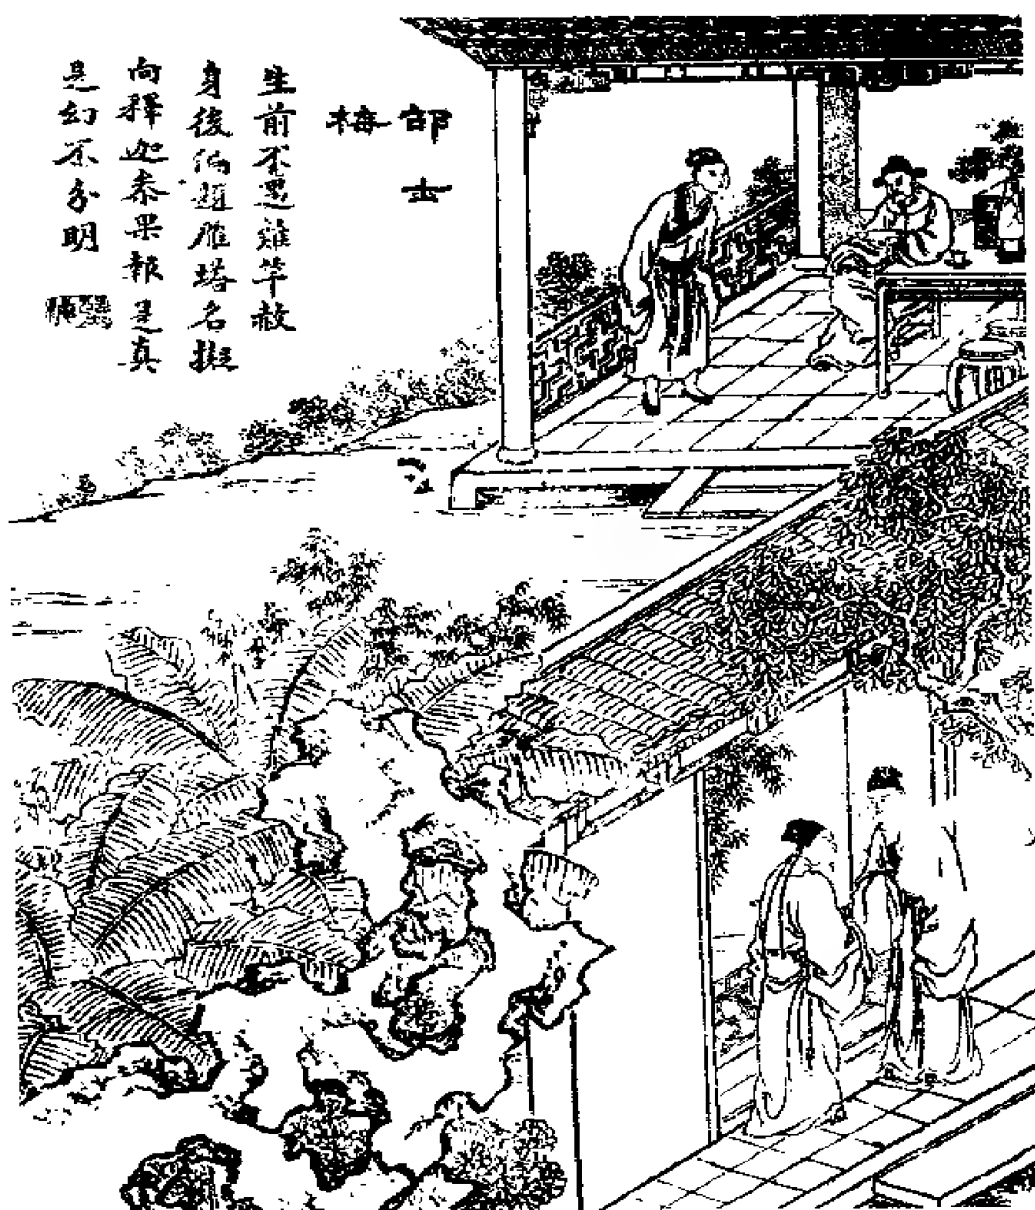 郜士梅
生前不遇雞竿赦
身後仍題雁塔名擬
向釋迦泰果報是真
是幻不分明